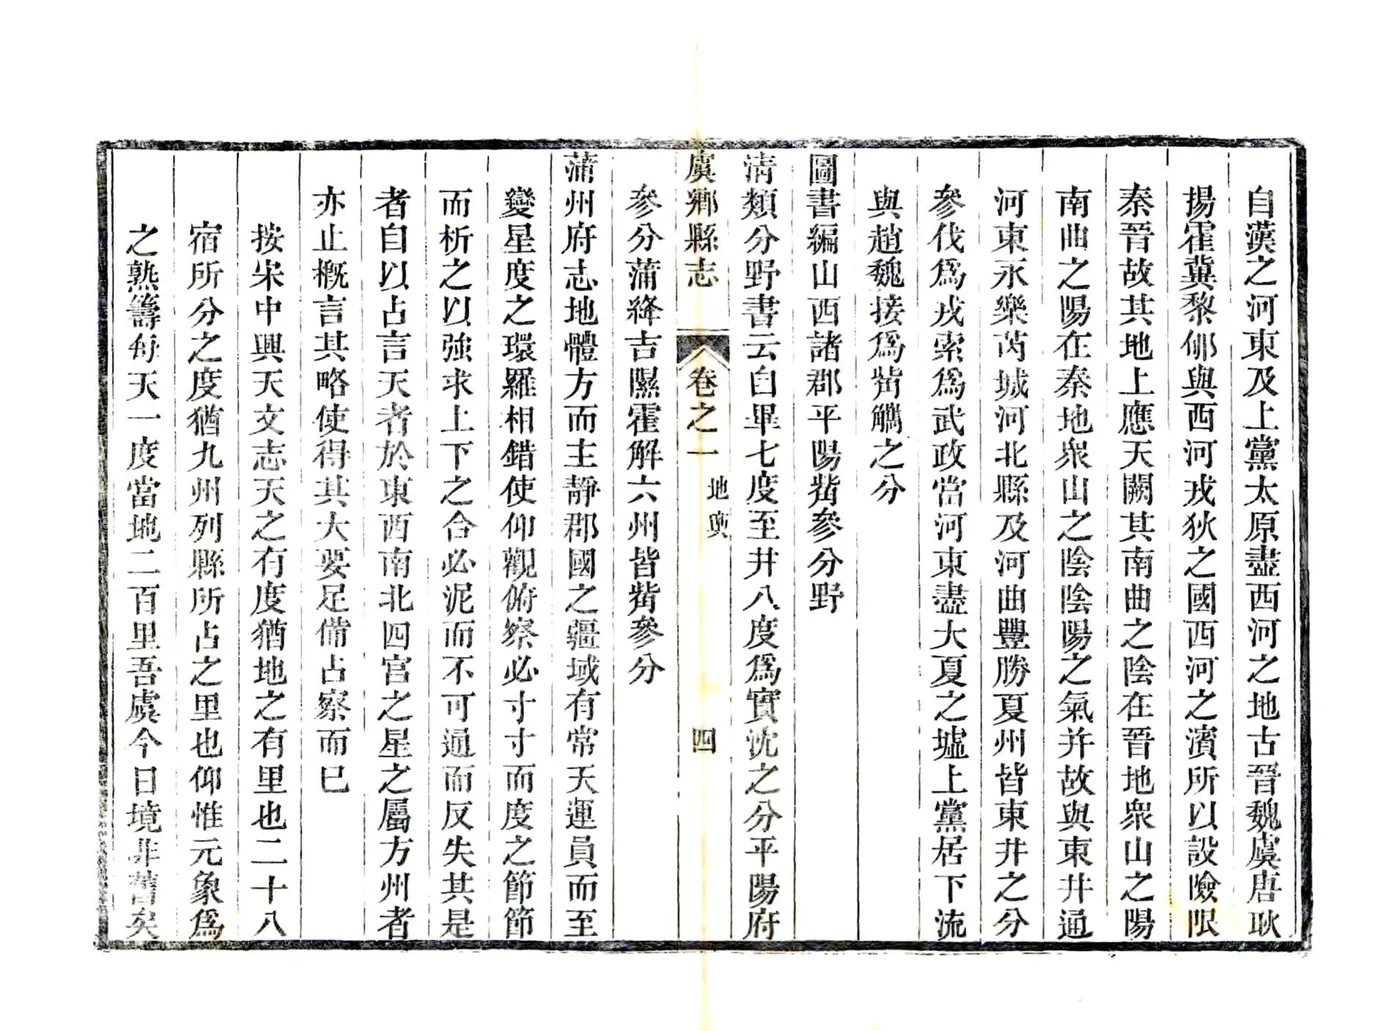 自漢之河東及上黨太原盡西河之地古晉魏虞唐耿
揚霍冀黎郇與西河戎狄之國西河之濱所以設險限
秦晉故其地上應天闕其南曲之陰在晉地衆山之陽
南曲之陽在秦地衆山之陰陰陽之氣并故與東井通
河東永樂芮城河北縣及河曲豐勝夏州皆東井之分
參伐為戎索為武政當河東盡大夏之墟上黨居下流
與趙魏接為觜觿之分
圖書編山西諸郡平陽觜參分野
清類分野書云自畢七度至井八度為實沈之分平陽府
虞鄉縣志 卷之一 地輿 四
參分蒲絳吉隰霍解六州皆觜參分
蒲州府志地體方而主靜郡國之疆域有常天運員而至
變星度之環羅相錯使仰觀俯察必寸寸而度之節節
而析之以強求上下之合必泥而不可通而反失其是
者自以占言天者於東西南北四宮之星之屬方州者
亦止概言其略使得其大要足備占察而已
按宋中興天文志天之有度猶地之有里也二十八
宿所分之度猶九州列縣所占之里也仰惟元象為
之熟籌每天一度當地二百里吾虞今日境非舊矣